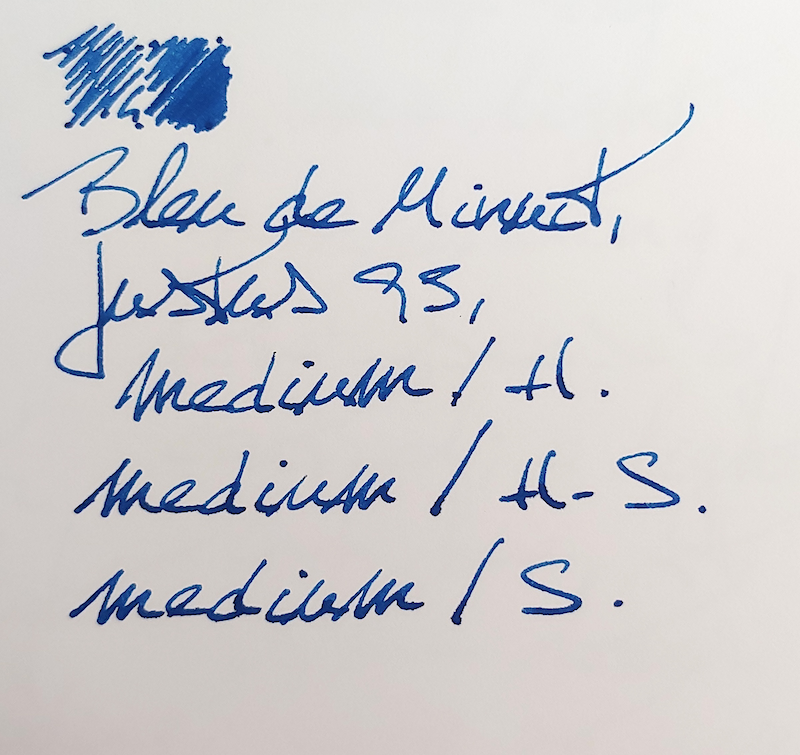 Bleu de Minuit,
Justus 95,
medium / H.
medium / H-S.
medium / S.